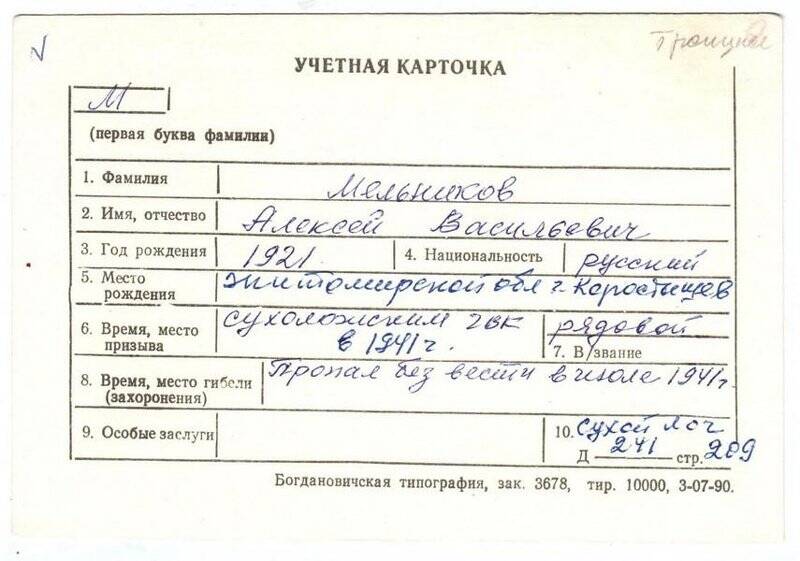 Троицкое
УЧЕТНАЯ КАРТОЧКА
М
(первая буква фамилии)
1. Фамилия Мельников
2. Имя, отчество Алексей Васильевич
3. Год рождения 1921. 4. Национальность русский
5. Место рождения Житомирской обл г. Коростищев
6. Время, место призыва Сухоложским гвк в 1941 г.
рядовой
7. В/звание
8. Время, место гибели (захоронения) Пропал без вести в июле 1941 г.
9. Особые заслуги
10. Сухой Лог
Д 241 стр. 209
Богдановичская типография, зак. 3678, тир. 10000, 3-07-90.